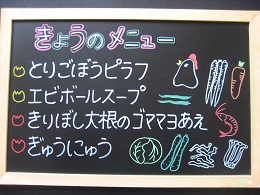 きょうのメニュー
とりごぼうピラフ
エビボールスープ
きりぼし大根のゴママヨあえ
ぎゅうにゅう